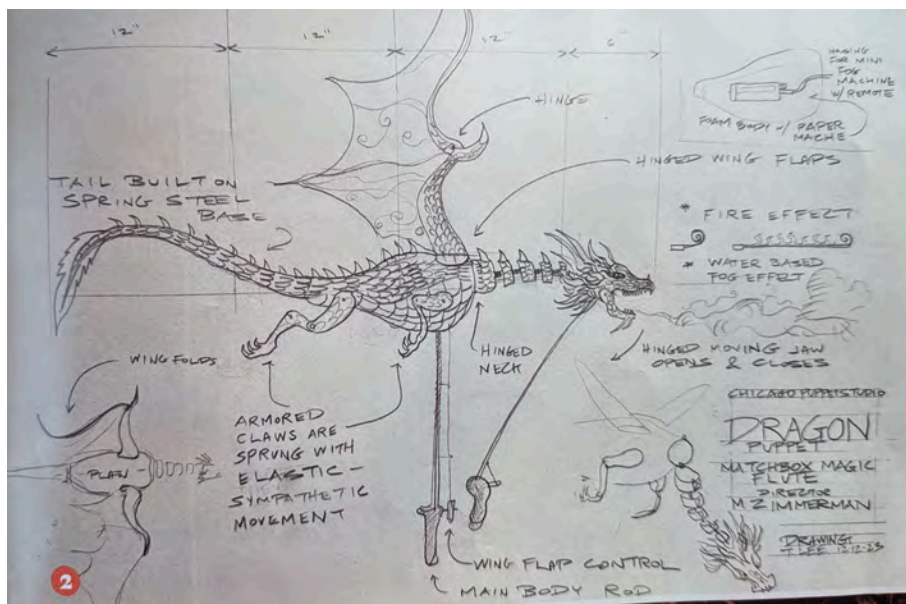 12"
12"
12"
6"
HOUSING
FOR MINI
FOG
MACHINE
W/ REMOTE
FOAM BODY W/ PAPER
MACHE
HINGE
HINGED WING FLAPS
TAIL BUILT ON
SPRING STEEL
BASE
* FIRE EFFECT
* WATER BASED
FOG EFFECT
WING FOLDS
HINGED
NECK
HINGED MOVING JAW
OPENS & CLOSES
ARMORED
CLAWS ARE
SPRUNG WITH
ELASTIC -
SYMPATHETIC
MOVEMENT
PLAN
CHICAGO PUPPET STUDIO
DRAGON
PUPPET
MATCHBOX MAGIC
FLUTE
DIRECTOR
M ZIMMERMAN
DRAWING:
T LEE 12.12.23
WING FLAP CONTROL
MAIN BODY ROD
2